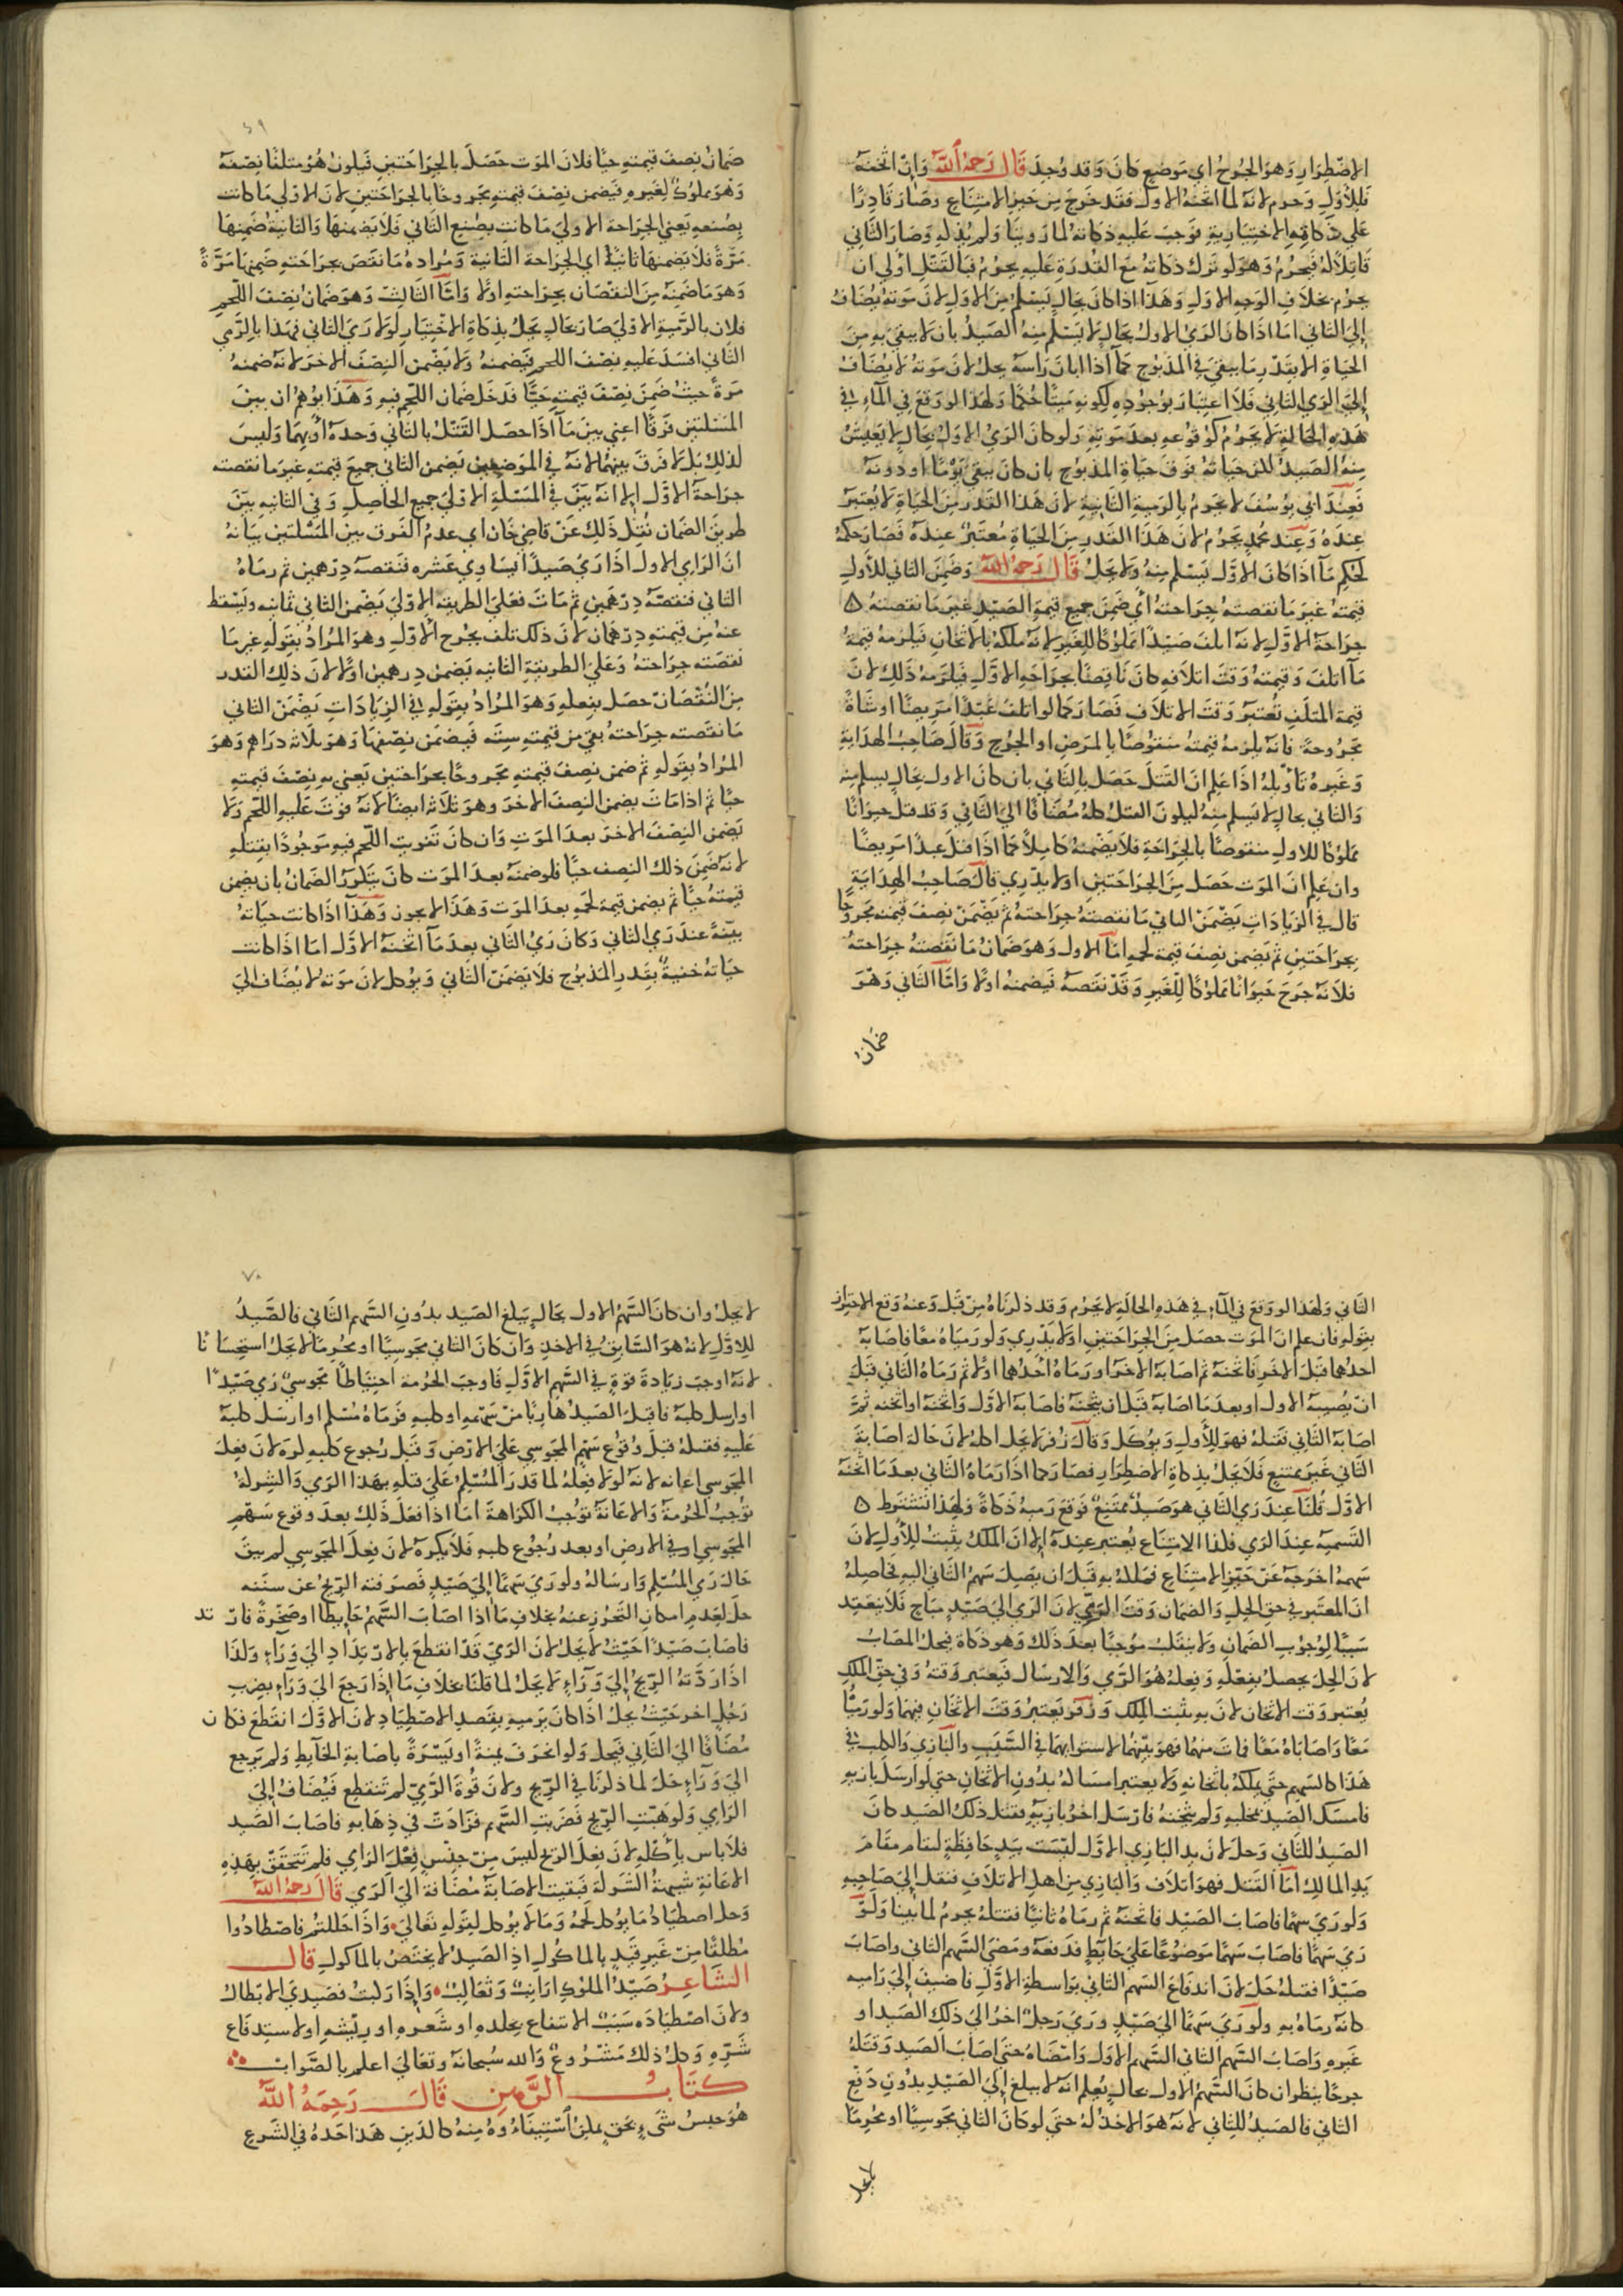 الاضطرار وهو الجرح اي موضع كان وقد وجد قال رحمه الله وان اثخنه
فللاول وحرم لانه لما اثخنه الاول فقد خرج من حيز الامتناع وصار قادرا
على ذكاته الاختيارية فوجب عليه ذكاته لما روينا ولم يذكه وصار الثاني
قاتلا له فيحرم وهو لو ترك ذكاته مع القدرة عليه يحرم فبالقتل اولى ان
يحرم بخلاف الوجه الاول وهذا اذا كان بحال يسلم من الاول لان موته يضاف
الى الثاني اما اذا كان الرمي الاول بحال لا يسلم منه الصيد بان لا يبقى به من
الحياة الا بقدر ما يبقى في المذبوح كما اذا ابان راسه يحل لان موته لا يضاف
الى الرمي الثاني فلا اعتبار بوجوده لكونه ميتا حكما ولهذا لو وقع في الماء في
هذه الحالة لا يحرم كوقوعه بعد موته ولو كان الرمي الاول بحال لا يعيش
منه الصيد لكن حياته فوق حياة المذبوح بان كان يبقى يوما او دونه
فعند ابي يوسف لا يحرم بالرمية الثانية لان هذا القدر من الحياة لا يعتبر
عنده وعند محمد يحرم لان هذا القدر من الحياة معتبر عنده فصار حكمه
كحكم ما اذا كان الاول يسلم منه ولا يحل قال رحمه الله وضمن الثاني للاول
قيمته غير ما نقصته جراحته اي ضمن جميع قيمة الصيد غير ما نقصته
جراحة الاول لانه اتلف صيدا مملوكا للغير لانه ملكه بالاثخان فيلزمه قيمة
ما اتلف وقيمته وقت اتلافه كان ناقصا بجراحة الاول فيلزمه ذلك لان
قيمة المتلف تعتبر وقت الاتلاف فصار كما لو اتلف عبدا مريضا او شاة
مجروحة فانه يلزمه قيمته منقوصا بالمرض او الجرح وقال صاحب الهداية
وغيره تاويله اذا علم ان القتل حصل بالثاني بان كان الاول بحال يسلم منه
والثاني بحال لا يسلم منه ليكون القتل كله مضافا الى الثاني وقد قتل حيوانا
مملوكا للاول منقوصا بالجراحة فلا يضمنه كاملا كما اذا قتل عبدا مريضا
وان علم ان الموت حصل من الجراحتين او لا يدري قال صاحب الهداية
قال في الزيادات يضمن الثاني ما نقصته جراحته ثم يضمن نصف قيمته مجروحا
بجراحتين ثم يضمن نصف قيمة لحمه اما الاول وهو ضمان ما نقصته جراحته
فلانه جرح حيوانا مملوكا للغير وقد نقصه فيضمنه اولا واما الثاني وهو
ضمان
٦٩
ضمان نصف قيمته حيا فلان الموت حصل بالجراحتين فيكون هو متلفا نصفه
وهو مملوك لغيره فيضمن نصف قيمته مجروحا بالجراحتين لان الاولى ما كانت
بصنعه يعني الجراحة الاولى ما كانت بصنع الثاني فلا يضمنها والثانية ضمنها
مرة فلا يضمنها ثانيا اي الجراحة الثانية ومراده ما نقص بجراحته ضمنها مرة
وهو ما ضمنه من النقصان بجراحته اولا واما الثالث وهو ضمان نصف اللحم
فلان بالرمية الاولى صار بحال يحل بذكاة الاختيار لولا رمي الثاني فهذا بالرمي
الثاني افسد عليه نصف اللحم فيضمنه ولا يضمن النصف الاخر لانه ضمنه
مرة حيث ضمن نصف قيمته حيا فدخل ضمان اللحم فيه وهذا يوهم ان بين
المسئلتين فرقا اعني بين ما اذا حصل القتل بالثاني وحده او بهما وليس
كذلك بل لا فرق بينهما لانه في الموضعين يضمن الثاني جميع قيمته غير ما نقصته
جراحة الاول الا انه بين في المسئلة الاولى جميع الحاصل وفي الثانية بين
طريق الضمان نقل ذلك عن قاضي خان اي عدم الفرق بين المسئلتين بيانه
ان الرامي الاول اذا رمى صيدا يساوي عشره فنقصه درهمين ثم رماه
الثاني فنقصه درهمين ثم مات فعلى الطريقه الاولى يضمن الثاني ثمانيه ويسقط
عنه من قيمته درهمان لان ذلك تلف بجرح الاول وهو المراد بقوله غير ما
نقصته جراحته وعلى الطريقة الثانيه يضمن درهمين اولا لان ذلك القدر
من النقصان حصل بفعله وهو المراد بقوله في الزيادات يضمن الثاني
ما نقصته جراحته بقي من قيمته سته فيضمن نصفها وهو ثلاثه دراهم وهو
المراد بقوله ثم ضمن نصف قيمته مجروحا بجراحتين يعني به نصف قيمته
حيا ثم اذا مات يضمن النصف الاخر وهو ثلاثه ايضا لانه فوت عليه اللحم ولا
يضمن النصف الاخر بعد الموت وان كان تفويت اللحم فيه موجودا بقتله
لانه ضمن ذلك النصف حيا فلو ضمنه بعد الموت كان يتكرر الضمان بان يضمن
قيمته حيا ثم يضمن قيمة لحمه بعد الموت وهذا لا يجوز وهذا اذا كانت حياته
بينة عند رمي الثاني وكان رمي الثاني بعد ما اثخنه الاول اما اذا كانت
حياته خفية بقدر المذبوح فلا يضمن الثاني ويوكل لان موته لا يضاف الى
الثاني ولهذا لو وقع في الماء في هذه الحاله لا يحرم وقد ذكرناه من قبل وعنه وقع الاحتراز
بقوله فان علم ان الموت حصل من الجراحتين او لا يدري ولو رمياه معا فاصابه
احدهما قبل الاخر فاثخنه ثم اصابه الاخر او رماه احدهما اولا ثم رماه الثاني قبل
ان يصيبه الاول او بعد ما اصابه قبل ان يثخنه فاصابه الاول واثخنه او اثخنه ثم
اصابه الثاني فقتله فهو للاول ويوكل وقال زفر لا يحل اكله لان حاله اصابة
الثاني غير ممتنع فلا يحل بذكاة الاضطرار فصار كما اذا رماه الثاني بعد ما اثخنه
الاول قلنا عند رمي الثاني هو صيد ممتنع فوقع رميه ذكاة ولهذا تشترط
التسميه عند الرمي فلذا الامتناع يعتبر عنده الا ان الملك يثبت للاول لان
سهمه اخرجه عن حيز الامتناع فملكه به قبل ان يصيل سهم الثاني اليه فحاصله
ان المعتبر في حق الحل والضمان وقت الرمي لان الرمي الى صيد مباح فلا ينعقد
سببا لوجوب الضمان ولا ينقلب موجبا بعد ذلك وهو ذكاة فيحل المصاب
لان الحل يحصل بفعله وفعله هو الرمي والارسال فيعتبر وقته وفي حق الملك
يعتبر وقت الاثخان لان به يثبت الملك وزفر يعتبر وقت الاثخان فيهما ولو رميا
معا واصاباه معا فمات منهما فهو بينهما لاستوائهما في السبب والبازي والكلب في
هذا كالسهم حتى يملكه باثخانه ولا يعتبر امساكه بدون الاثخان حتى لو ارسل بازيه
فامسك الصيد بمخلبه ولم يثخنه فارسل اخر بازيه فقتل ذلك الصيد كان
الصيد للثاني وحل لان يد البازي الاول ليست بيد حافظة لتقام مقام
يد المالك اما القتل فهو اتلاف والبازي من اهل الاتلاف فنقل الى صاحبه
ولو رمى سهما فاصاب الصيد فاثخنه ثم رماه ثانيا فقتله يحرم لما بينا ولو
رمى سهما فاصاب سهما موضوعا على حائط فدفعه ومضى السهم الثاني واصاب
صيدا فقتله حل لان اندفاع السهم الثاني بواسطة الاول فاضيف الى راميه
كانه رماه به ولو رمى سهما الى صيد ورمى رجل اخر الى ذلك الصيد او
غيره واصاب السهم الثاني السهم الاول وامضاه حتى اصاب الصيد وقتله
جرحا ينظر ان كان السهم الاول بحال يعلم انه لا يبلغ الى الصيد بدون دفع
الثاني فالصيد للثاني لانه هو الاخذ له حتى لو كان الثاني مجوسيا او محرما
لا يحل
٧٠
لا يحل وان كان السهم الاول بحال يبلغ الصيد بدون السهم الثاني فالصيد
للاول لانه هو السابق في الاخذ وان كان الثاني مجوسيا او محرما لا يحل استحسانا
لانه اوجب زيادة قوة في السهم الاول فاوجب الحرمة احتياطا مجوسي رمى صيدا
او ارسل كلبه فاقبل الصيد هاربا من سهمه او كلبه فرماه مسلم او ارسل كلبه
عليه فقتله قبل وقوع سهم المجوسي على الارض وقبل رجوع كلبه كره لان فعل
المجوسي اعانه لانه لولا فعله لما قدر المسلم على قتله بهذا الرمي والشركة
توجب الحرمة والاعانة توجب الكراهة اما اذا فعل ذلك بعد وقوع سهم
المجوسي في الارض او بعد رجوع كلبه فلا يكره لان فعل المجوسي لم يبق
حالة رمي المسلم وارساله ولو رمى سهما الى صيد فصرفته الريح عن سننه
حل لعدم امكان التحرز عنه بخلاف ما اذا اصاب السهم حائطا او صخرة فارتد
فاصاب صيدا حيث لا يحل لان الرمي قد انقطع بالارتداد الى وراء وكذا
اذا ردته الريح الى وراء لا يحل لما قلنا بخلاف ما اذا رجع الى وراء بضرب
رجل اخر حيث يحل اذا كان يرميه بقصد الاصطياد لان الاول انقطع فكان
مضافا الى الثاني فيحل ولو انحرف يمنة او يسرة باصابة الحائط ولم يرجع
الى وراء حل لما ذكرنا في الريح ولان قوة الرمي لم تنقطع فيضاف الى
الرامي ولو هبت الريح فضربت السهم فزادت في ذهابه فاصاب الصيد
فلا باس باكله لان فعل الريح ليس من جنس فعل الرامي فلم تتحقق بهذه
الاعانة شبهة الشركة فبقيت الاصابة مضافة الى الرمي قال رحمه الله
وحل اصطياد ما يوكل لحمه وما لا يوكل لقوله تعالى واذا حللتم فاصطادوا
مطلقا من غير قيد بالماكول اذ الصيد لا يختص بالماكول قال
الشاعر صيد الملوك ارانب وثعالب واذا ركبت فصيدي الابطال
ولان اصطياده سبب الانتفاع بجلده او شعره او ريشه او لاستدفاع
شره وكل ذلك مشروع والله سبحانه وتعالى اعلم بالصواب
كتاب الرهن قال رحمه الله
هو حبس شيء بحق يمكن استيفاؤه منه كالدين هذا حده في الشرع